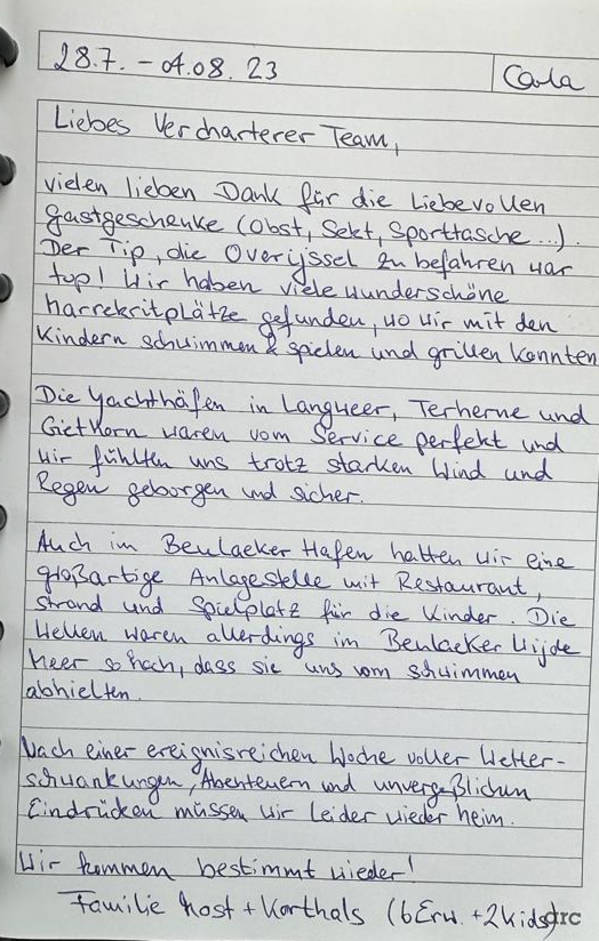 28.7. - 04.08.23 Carla
Liebes Vercharterer Team,
vielen lieben Dank für die Liebevollen
Gastgeschenke (Obst, Sekt, Sporttasche ...).
Der Tip, die Overijssel zu befahren war
top! Wir haben viele wunderschöne
Marrekritplätze gefunden, wo wir mit den
Kindern schwimmen & spielen und grillen konnten
Die Yachthäfen in Langweer, Terherne und
Gietkorn waren vom Service perfekt und
wir fühlten uns trotz starken Wind und
Regen geborgen und sicher.
Auch im Beulaeker Hafen hatten wir eine
großartige Anlagestelle mit Restaurant,
Strand und Spielplatz für die Kinder. Die
Wellen waren allerdings im Beulaeker Wijde
Meer so hoch, dass sie uns vom schwimmen
abhielten.
Nach einer ereignisreichen Woche voller Wetter-
schwankungen, Abenteuern und unvergeßlichen
Eindrücken müssen wir leider wieder heim.
Wir kommen bestimmt wieder!
Familie + Korthals (6 Erw. + 2 Kids)